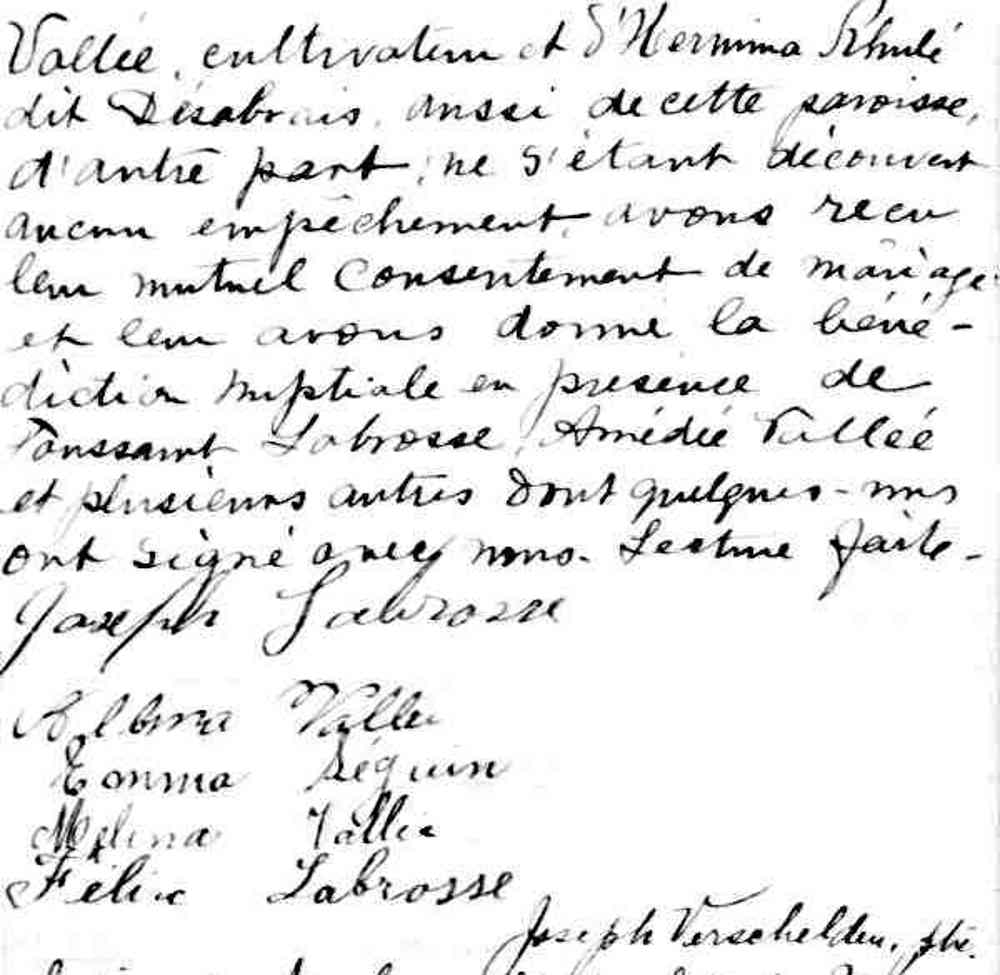 Vallée, cultivateur et d'Hermina
dit Désabrais, aussi de cette paroisse,
d'autre part, ne s'étant découvert
aucun empêchement, avons recu
leur mutuel consentement de mariage
et leur avons donné la béné-
diction nuptiale en présence de
Toussaint Labrosse, Amédée Vallée
et plusieurs autres dont quelques-uns
ont signé avec nous. Lecture faite-
Joseph Labrosse
Albina Vallée
Emma Séguin
Mélina Vallée
Félix Labrosse
Joseph Verschelden, ptre.